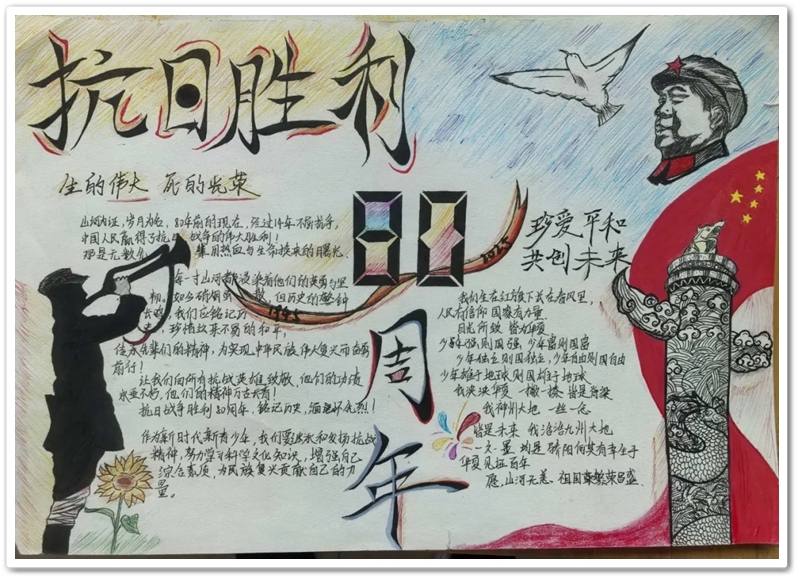 抗日胜利
80
周年
1945
2025
生的伟大 死的光荣
山河为证，岁月为名，80年前的现在，经过14年不屈抗争，
中国人民赢得了抗日战争的伟大胜利！
那是无数
用热血与生命换来的曙光
每一寸山河都浸染着他们的英勇与坚
但历史的警钟
我们应铭记历
珍惜这来之不易的和平，
传承先辈们的精神，为实现中华民族伟大复兴而奋勇
前行！
让我们向所有抗战英雄致敬，他们的功绩
永垂不朽，他们的精神万古长青！
抗日战争胜利80周年，铭记历史，缅怀先烈！
作为新时代新青少年，我们要继承和发扬抗战
精神，努力学习科学文化知识，增强自己
综合素质，为民族复兴贡献自己的力
量。
珍爱平和
共创未来
我们生在红旗下长在春风里，
人民有信仰 国家有力量
目光所致 皆为华夏
少年强，则国强，少年富则国富
少年独立则国独立，少年自由则国自由
少年雄于地球，则国雄于地球
我泱泱华夏 一撇一捺 皆是脊梁
我神州大地 一丝一念
皆是未来 我浩浩九州大地
一文一墨 均是骄阳 何其有幸生于
华夏 见证百年
愿，山河无恙、祖国繁荣昌盛